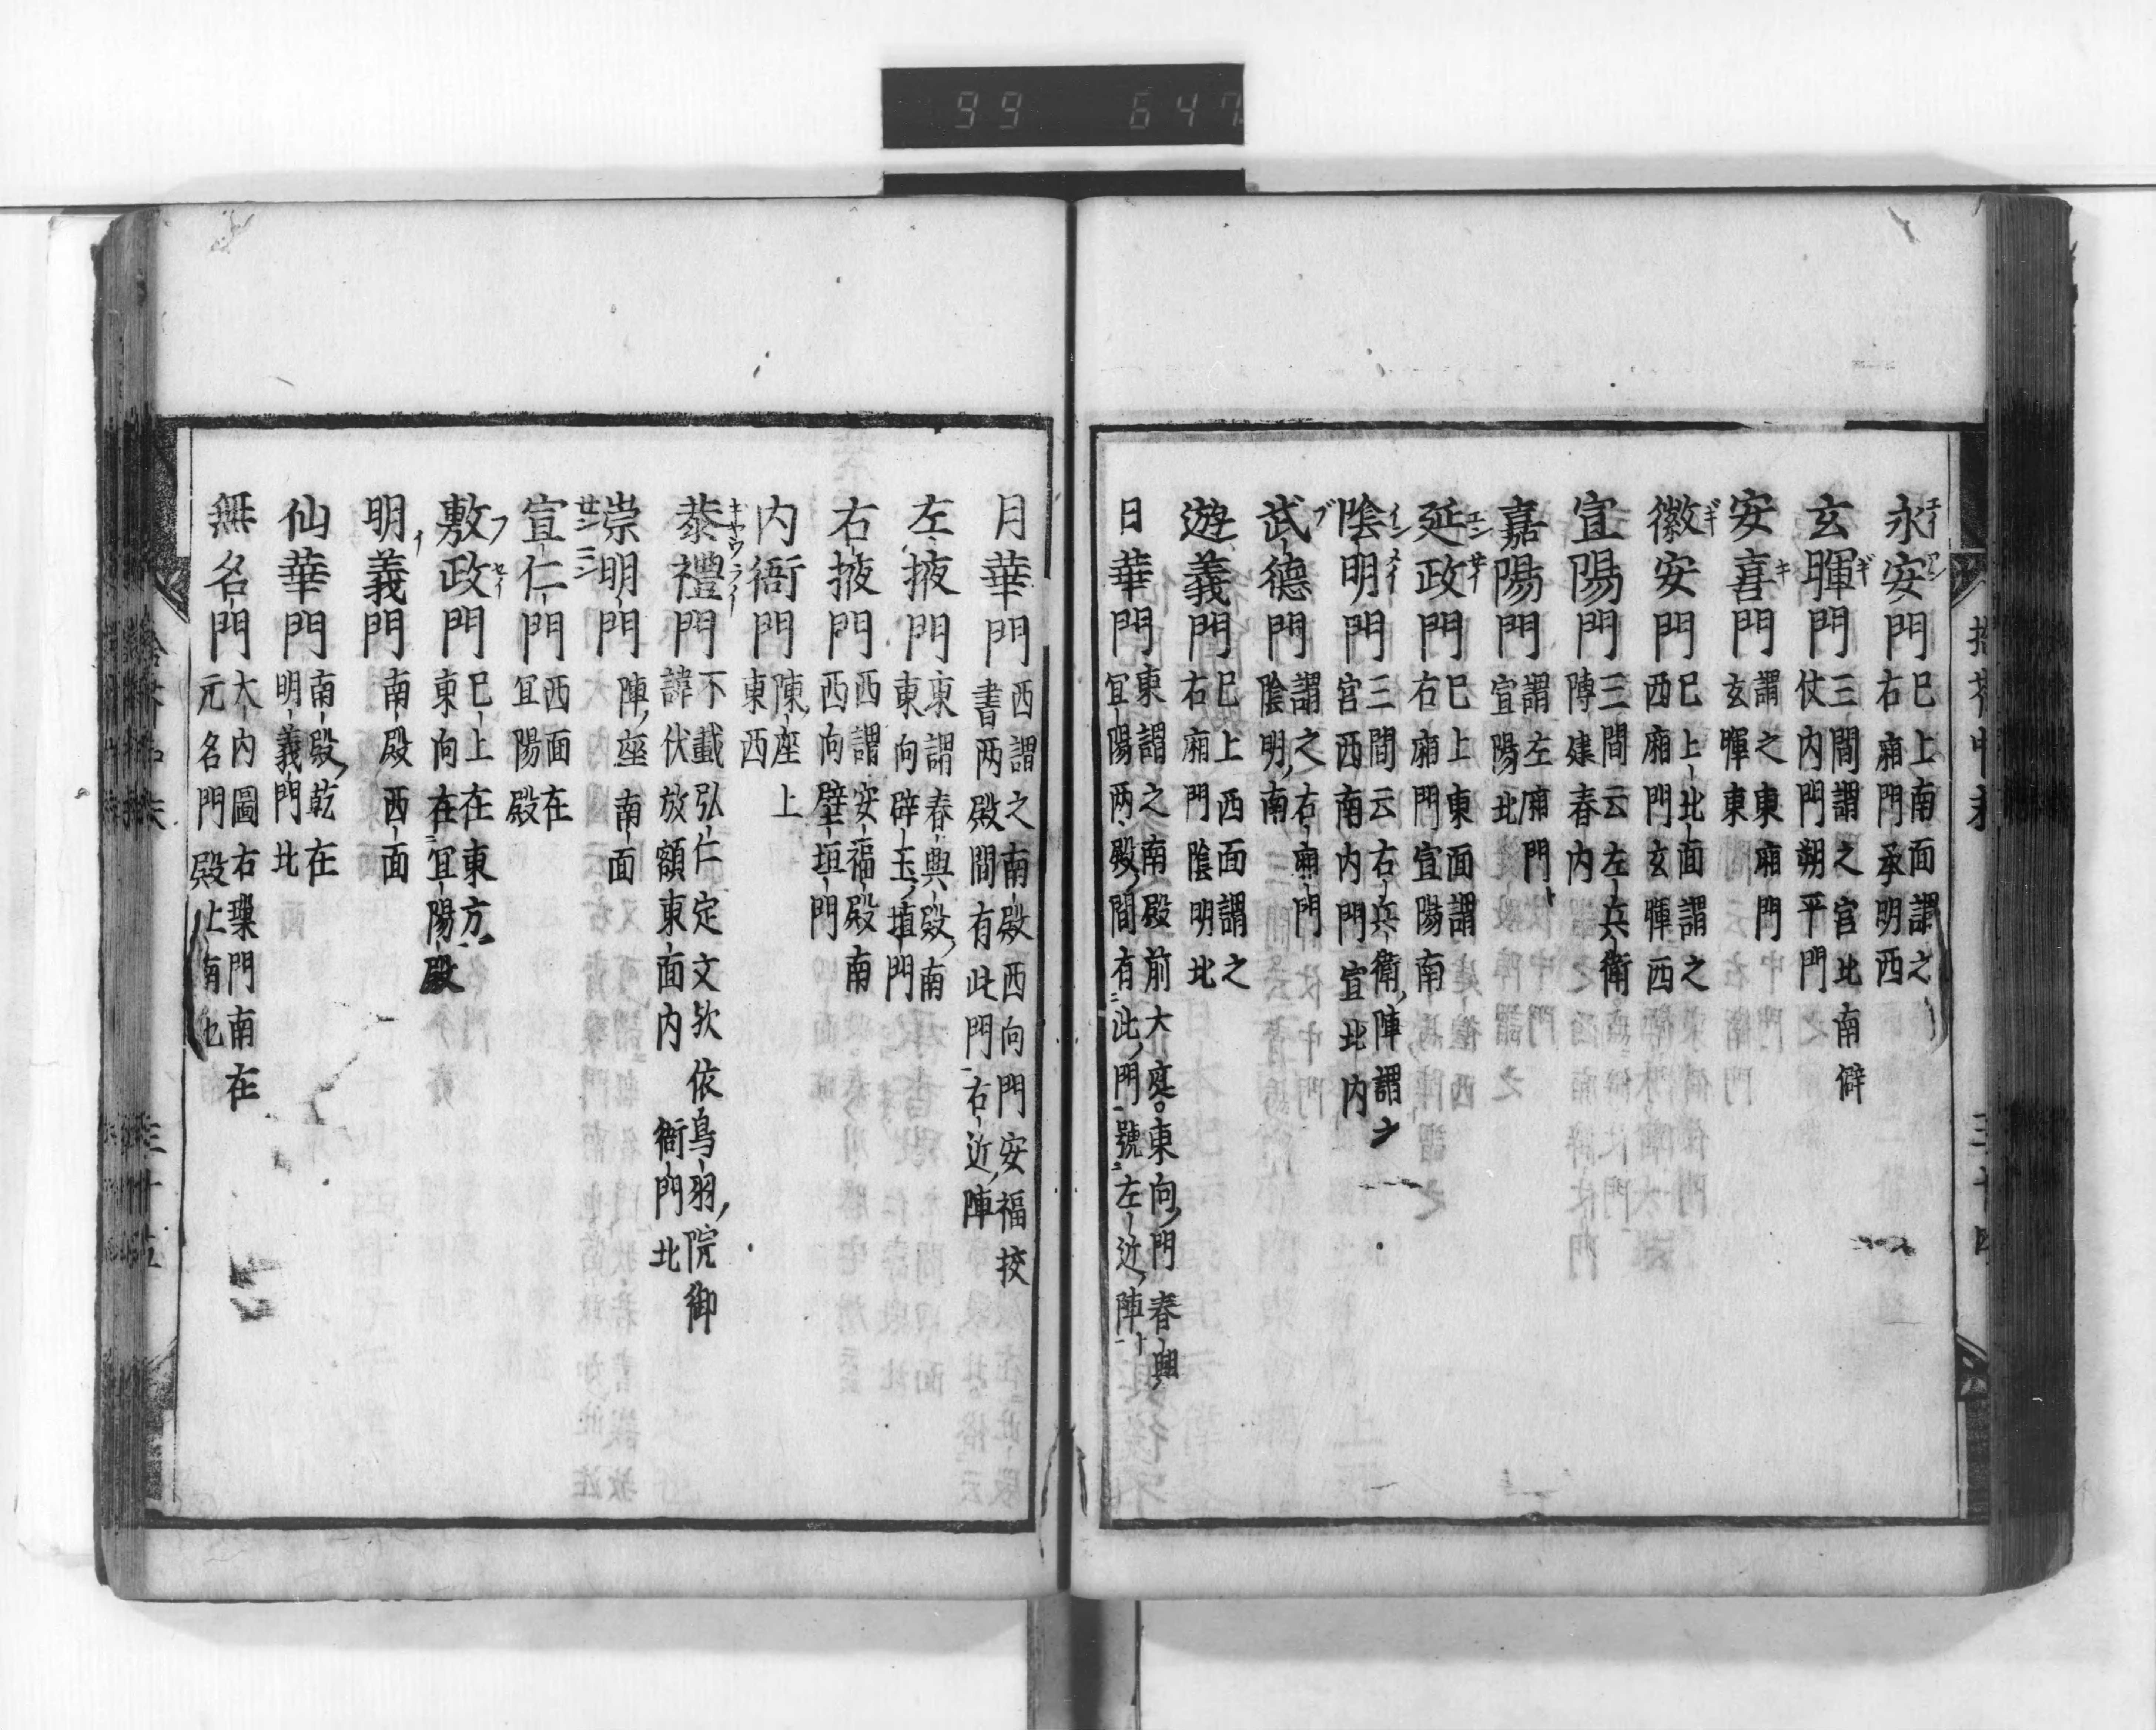 永安門 巳上南面謂之
右廂門承明西
玄暉門 三間謂之宮北南僻
仗内門朔平門
安喜門 謂之東廂門
玄暉東
徽安門 巳上北面謂之
西廂門玄暉西
宣陽門 三間云左兵衛
陣建春内
嘉陽門 謂左廂門
宣陽北
延政門 巳上東面謂
右廂門宣陽南
陰明門 三間云右兵衛陣謂之
宮西南内門宣北内
武德門 謂之右廂門
陰明南
遊義門 巳上西面謂之
右廂門陰明北
日華門 東謂之南殿前大庭東向門 春興
宜陽两殿間有此門號左近陣
月華門 西謂之南殿西向門 安福挍
書两殿間有此門右近陣
左掖門 東謂春興殿南
東向辟玉埴門
右掖門 西謂安福殿南
西向壁垣門
内衙門 陳座上
東西
㳟禮門 不載弘仁定文欤依鳥羽院御
諱伏放額東面内 衙門北
崇明門 陣座南面
宣仁門 西面在
冝陽殿
敷政門 巳上在東方
東向在冝陽殿
明義門 南殿西面
仙華門 南殿乾在
明義門北
無名門 大内圖右
元名門殿上南也
門南在
三十四
三十五
99 647